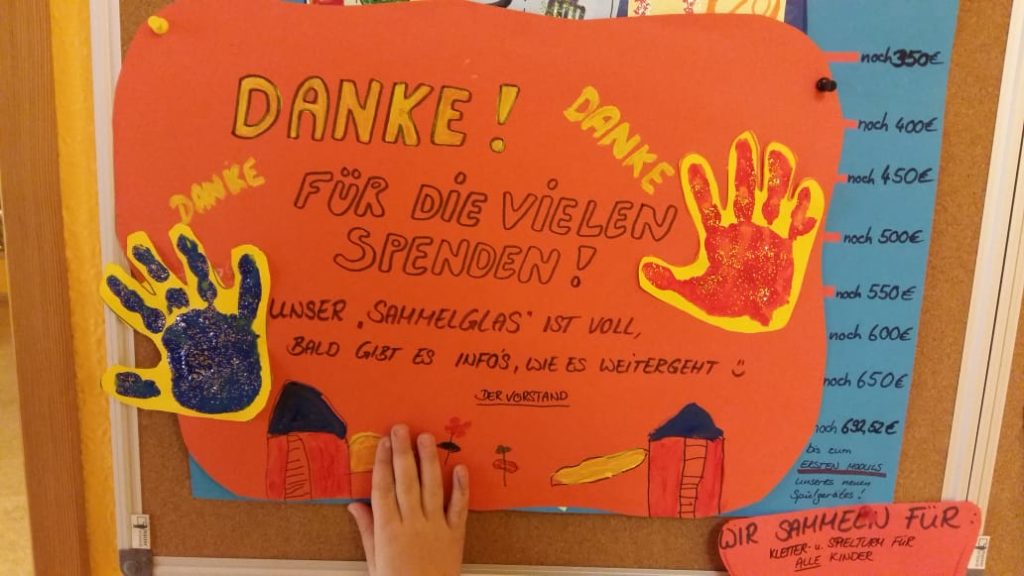 DANKE!
DANKE
DANKE
FÜR DIE VIELEN
SPENDEN!
UNSER „SAMMELGLAS" IST VOLL,
BALD GIBT ES INFO'S, WIE ES WEITERGEHT
DER VORSTAND
noch 350€
noch 400€
noch 450€
noch 500€
noch 550€
noch 600€
noch 650€
noch 692,52€
bis zum
ERSTEN MODULS
unseres neuen
Spielgerätes!
WIR SAMMELN FÜR:
KLETTER- u. SPIELTURM FÜR
ALLE KINDER